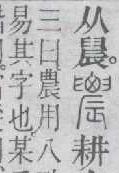 从晨。耕
三曰農用八
易其字也某